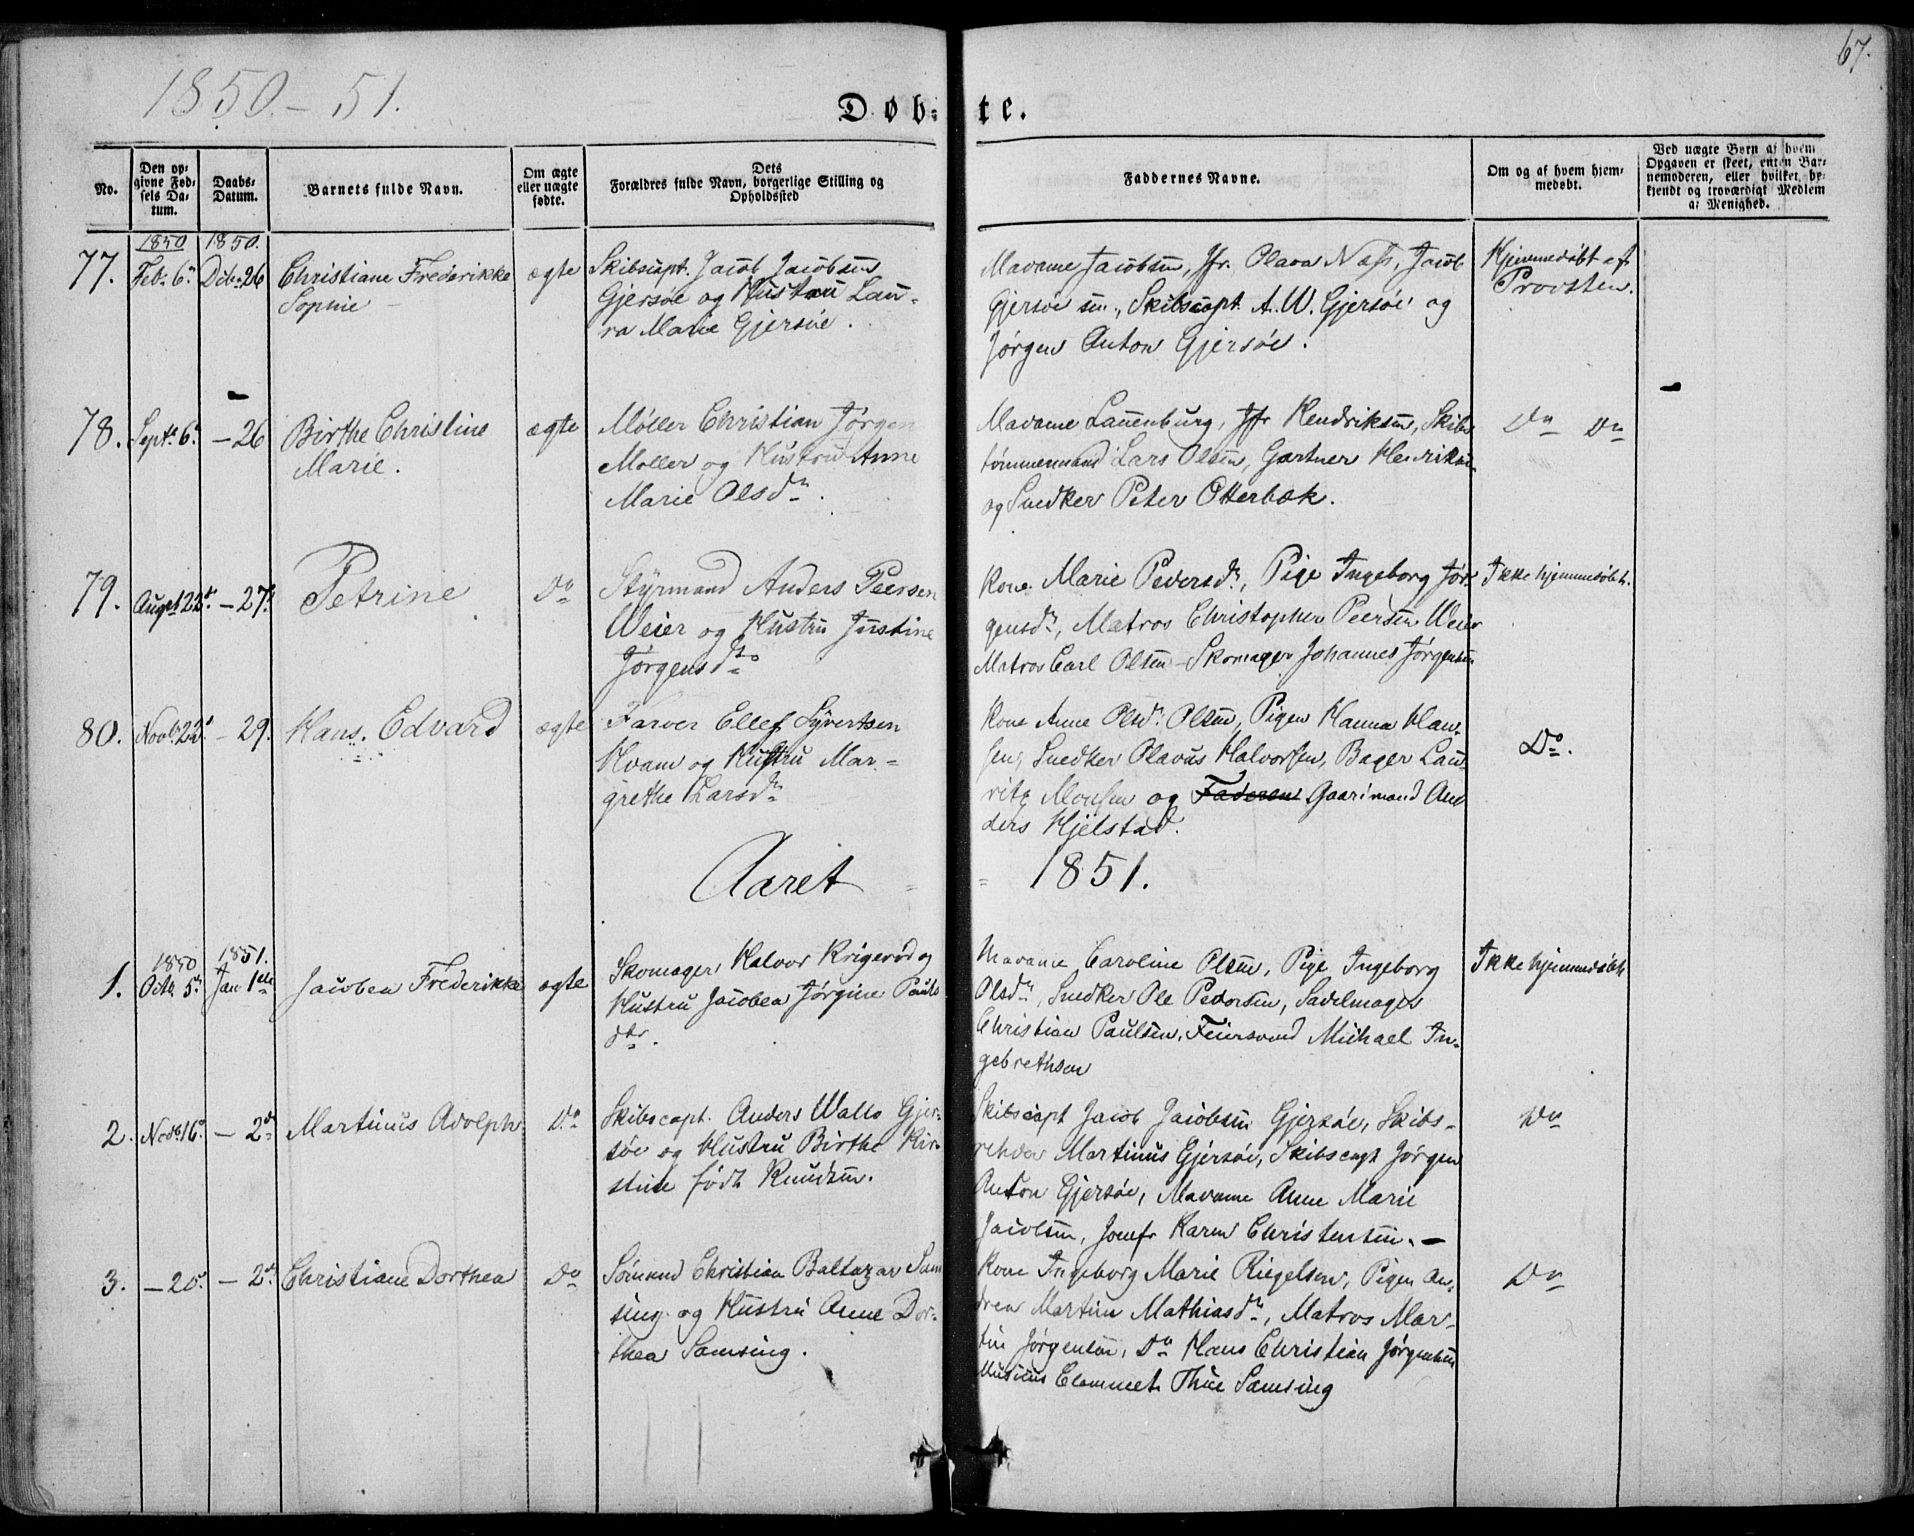 67.
1850-51.
Døb-te.
No.
Den op-
givne Fød-
sels Da-
tum.
Daabs-
Datum.
Barnets fulde Navn.
Om ægte
eller uægte
fødte.
Dets
Forældres fulde Navn, borgerlige Stilling og
Opholdssted
Faddernes Navne.
Om og af hvem hjem-
medøbt.
Ved uægte Børn af hvem
Opgaven er skeet, enten Bar-
nemoderen, eller hvilket be-
kjendt og troværdigt Medlem
af Menighed.
1850 1850.
77. Feb. 6. Dcb. 26 Christiane Frederikke
Sophie
ægte
Skibscapt. Jacob Jacobsen
Gjersøe og Hustru Lau-
ra Marie Gjersøe.
Madame Jacobsen, Jfr. Olava Næss, Jacob
Gjersøe sen., Skibscapt. A. W. Gjersøe og
Jørgen Anton Gjersøe.
Hjemmedøbt af
Provsten.
78. Sept. 6. - 26 Birthe Christine
Marie.
ægte
Møller Christian Jørgen
Møller og Hustru Anne
Marie Olsdr.
Madame Lauenburg, Jfr Hendriksen, Skibs
tømmermand Lars Olsen, Gartner Henriksen
og Snedker Peter Otterbæk.
Do Do
79. Augst 22. - 27. Petrine
Do
Styrmand Anders Peersen
Weier og Hustru Justine
Jørgensdtr
Kone Marie Pedersdr, Pige Ingeborg Jør
gensdr, Matros Christopher Peersen Weier
Matros Carl Olsen - Skomager Johannes Jørgensen
Ikke hjemmedøbt.
80. Novbr 22. - 29. Hans. Edvard
ægte
Farver Ellef Syvertsen
Kvam og Hustru Mar-
grethe Larsdr
Kone Anne Olsdr. Olsen, Pigen Hanna Han-
sen, Snedker Olavus Halvorsen, Bager Lau-
ritz Monsen og Faderen Gaardmand An
ders Hjelstad.
Do.
Aaret 1851.
1850 1851.
1. Octb. 5. Jan 1ste Jacobea Frederikke
ægte
Skomager Halvor Krigerød og
Hustru Jacobea Jørgine Pauls
dtr.
Madame Caroline Olsen, Pige Ingeborg
Olsdr, Snedker Ole Pedersen, Sadelmager
Christian Paulsen, Feiersvend Michael In-
gebrethsen
Ikke hjemmedøbt.
2. Nov. 16. - 2d. Martinus Adolph
Do
Skibscapt. Anders Wallo Gjer-
søe og Hustru Birthe Kir-
stine født Knudsen.
Skibscapt Jacob Jacobsen Gjersøe, Skibs-
rehder Martinus Gjersøe, Skibscapt Jørgen
Anton Gjersøe, Madame Anne Marie
Jacobsen, Jomfr Karen Christensen. -
Do
3. - 20. - 2d. Christiane Dorthea
Do
Sømand Christian Baltazar Sam
sing og Hustru Anne Dor-
thea Samsing.
Kone Ingeborg Marie Riegelsen, Pigen An-
drea Martine Mathiasdr, Matros Mar-
tin Jørgensen, Do Hans Christian Jørgensen
Musicus Clemmet Thue Samsing
Do